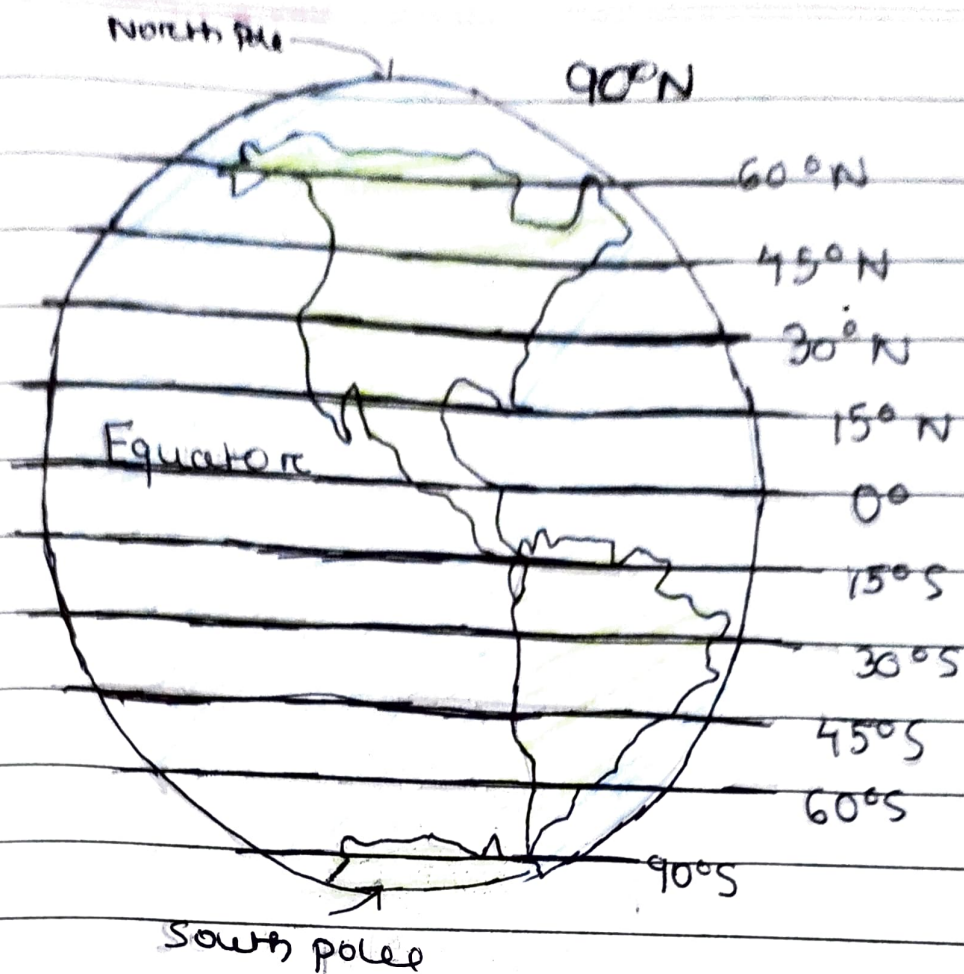 North Pole
90°N
60°N
45°N
30°N
15°N
Equator
0°
15°S
30°S
45°S
60°S
90°S
South polee